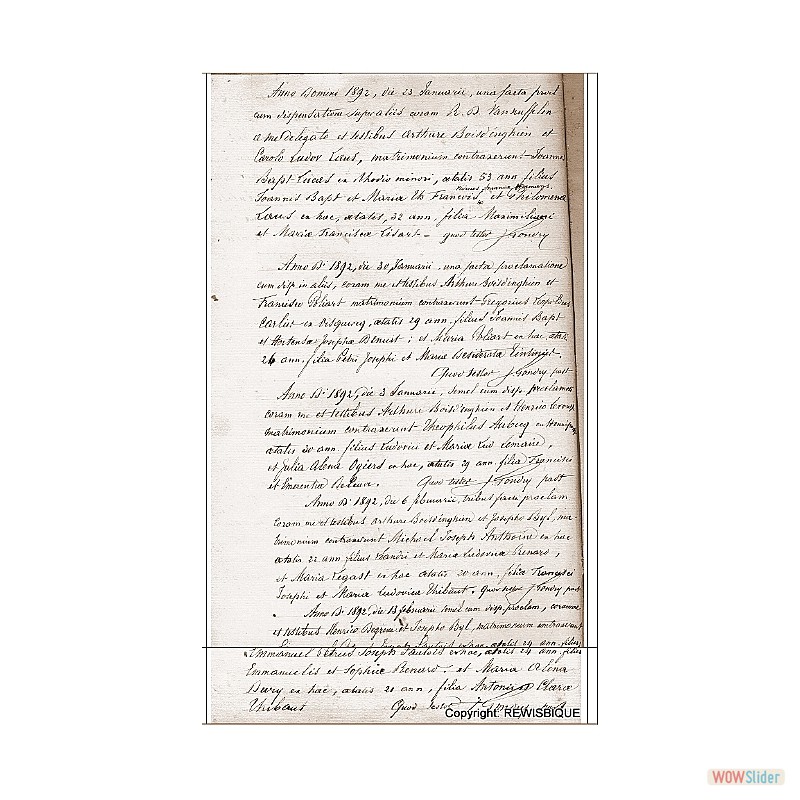 Anno Domini 1892, die 23 Januarii, una facta procl
cum dispensatione super aliis coram R. D. Vanhuffelen
a me delegato et testibus Arthure Boisdenghien et
Carolo Ludov Laus, matrimonium contraxerunt Joannes
Bapst Lucas ex Rhodio minori, ætatis 53 ann filius
Joannis Bapst et Mariæ Th François, et Philomena
Laus ex hac, ætatis, 32 ann, filia Maximiliani
et Mariæ Francisca Lisart - quod testor J. Gondry
Anno Dⁱ 1892, die 30 Januarii, una facta proclamatione
cum disp in aliis, coram me et testibus Arthure Boisdenghien et
Francisco Poliart matrimonium contraxerunt Gregorius
Carlier ex ætatis 29 ann. filius Joannis Bapst
et Hortensæ Josephæ Benuit ; et Maria Poliart ex hac, ætat.
26 ann. filia Petri Josephi et Mariæ Desiderata
Quod testor J. Gondry past
Anno Dⁱ 1892, die 3 semel cum disp proclamat
coram me et testibus Arthure Boisdenghien et Henrico
matrimonium contraxerunt Theophilus ex
ætatis 30 ann filius Ludovici et Mariæ Lud Lemaire,
et Julia Alena Ogiers ex hac, ætatis 29 ann. filia Francisci
et Emerentiæ Quod testor J. Gondry past
Anno Dⁱ 1892, die 6 februarii, tribus factis proclam
coram me et testibus Arthure Boisdenghien et Josepho Byl, ma-
trimonium contraxerunt Michael Joseph Anthoine ex hac
ætatis 22 ann filius et Mariæ Ludovica Renard,
et Maria Legast ex hac ætatis 20 ann. filia Francisci
Josephi et Mariæ Ludovica Thibaut. Quod testor J. Gondry past
Anno Dⁱ 1892, die 13 februarii semel cum disp. proclam, coram me
et testibus Henrico et Josepho Byl, matrimonium contraxerunt
Emmanuel Petrus Joseph ex hac, ætatis 24 ann. filius
Emmanuelis et Sophiæ Renard : et Maria Alena
Dury ex hac, ætatis 21 ann, filia Antonii et Claræ
Thibaut Quod testor J. Gondry past
Copyright: REWISBIQUE
WOWSlider